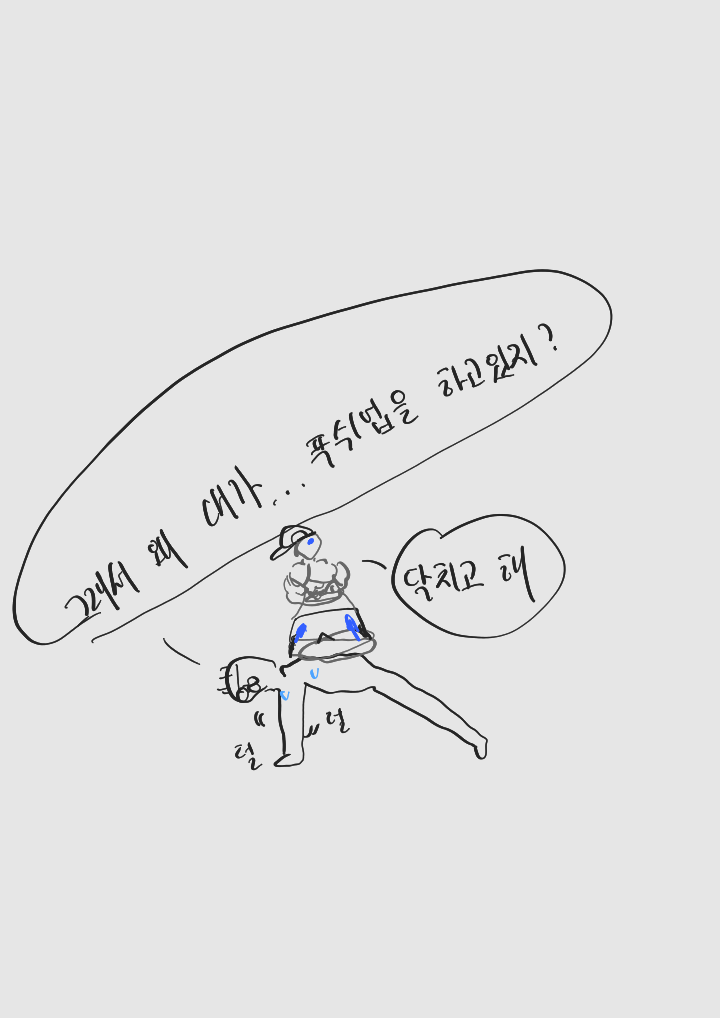 그래서 왜 대가... 푹식법을 하고있지?
닥치고 해
덜
덜